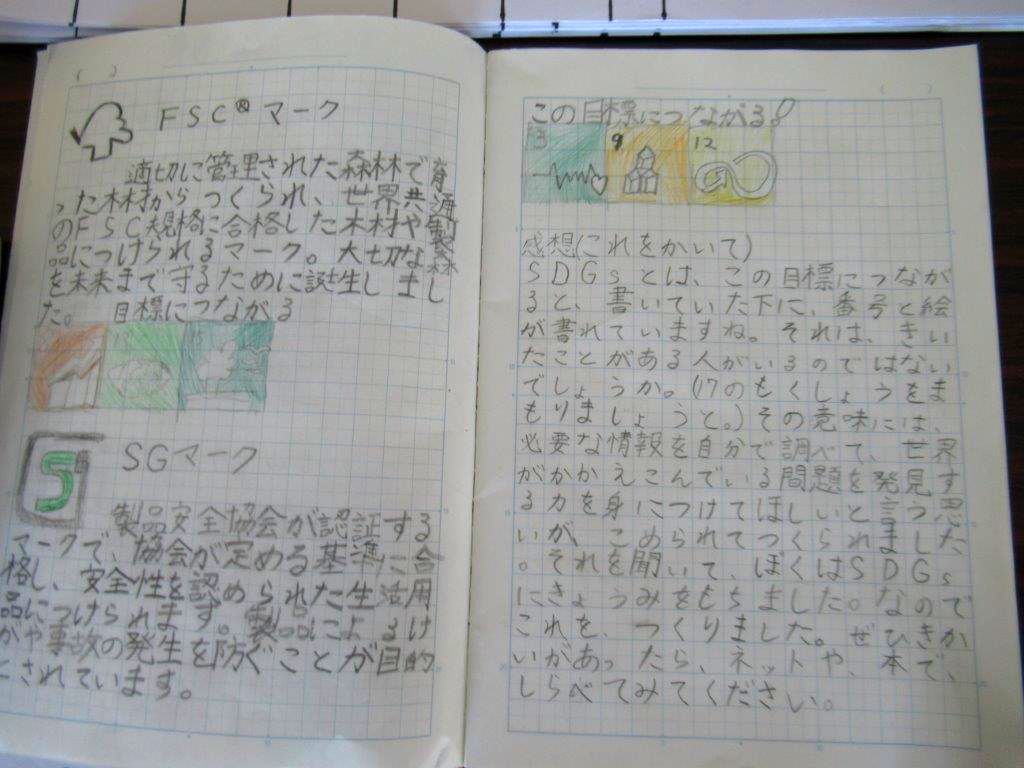 FSC®マーク
適切に管理された森林で育
った木材からつくられ、世界共通
のFSC規格に合格した木材や製
品につけられるマーク。大切な森
を未来まで守るために誕生しまし
た。 目標につながる
S
SGマーク
製品安全協会が認証する
マークで、協会が定める基準に合
格し、安全性を認められた生活用
品につけられます。製品によるけ
がや事故の発生を防ぐことが目的
とされています。
この目標につながる!
3 9 12
感想(これをかいて)
SDGsとは、この目標につなが
ると、書いていた下に、番号と絵
が書れていますね。それは、きい
たことがある人がいるのではない
でしょうか。(17のもくしょうをま
もりましょうと。)その意味には、
必要な情報を自分で調べて、世界
がかかえこんでいる問題を発見す
る力を身につけてほしいと言う思
いが、こめられてつくられました
。それを聞いて、ぼくはSDGs
にきょうみをもちました。なので
これを、つくりました。ぜひきか
いがあったら、ネットや、本で、
しらべてみてください。